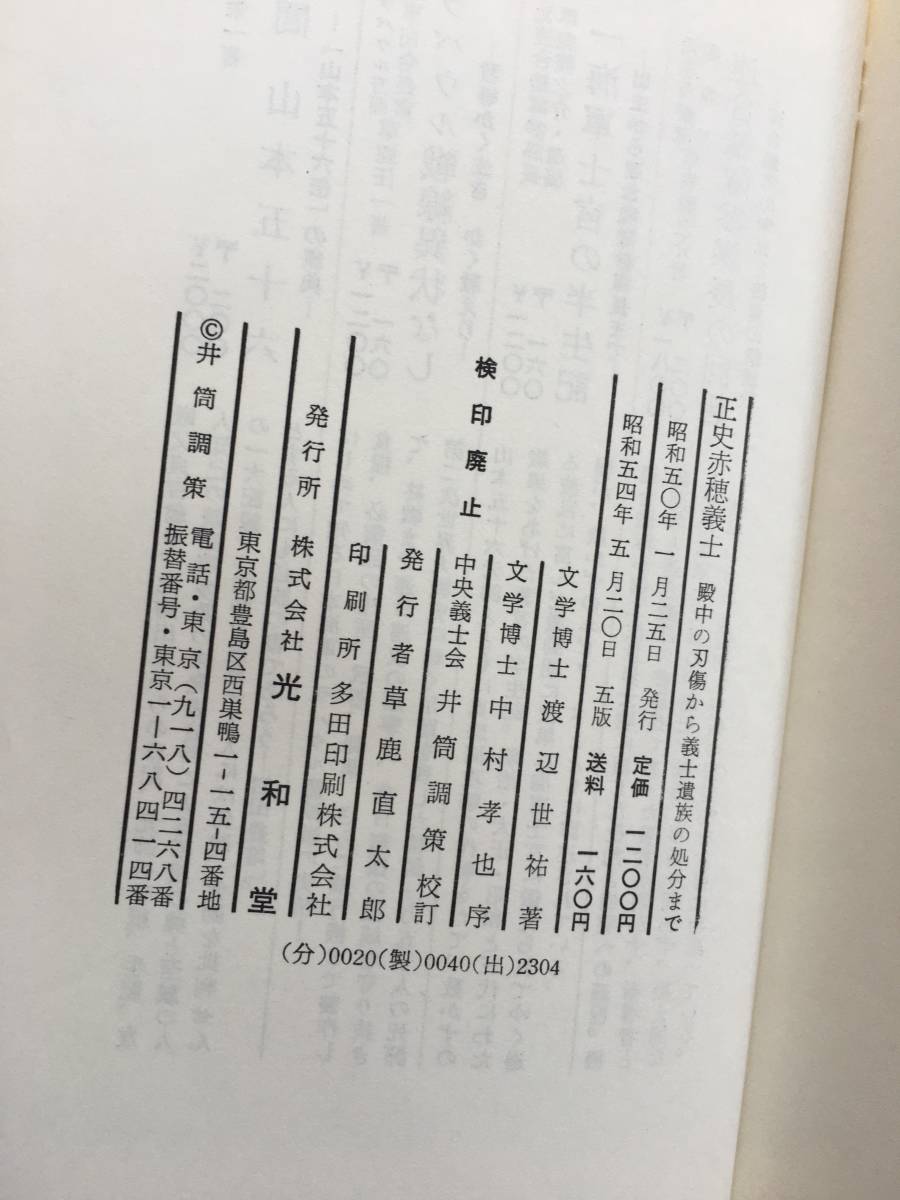 正史赤穂義士 殿中の刃傷から義士遺族の処分まで
昭和五〇年 一月二五日 発行 定価 一二〇〇円
昭和五四年 五月二〇日 五版 送料 一六〇円
文学博士 渡辺世祐 著
文学博士 中村孝也 序
中央義士会 井筒調策 校訂
検印廃止
発行者 草鹿直太郎
印刷所 多田印刷株式会社
発行所 株式会社 光和堂
東京都豊島区西巣鴨一-一五-四番地
電話・東京(九一八)四二六八番
振替番号・東京一—六八四一四番
©井筒調策
(分)0020(製)0040(出)2304